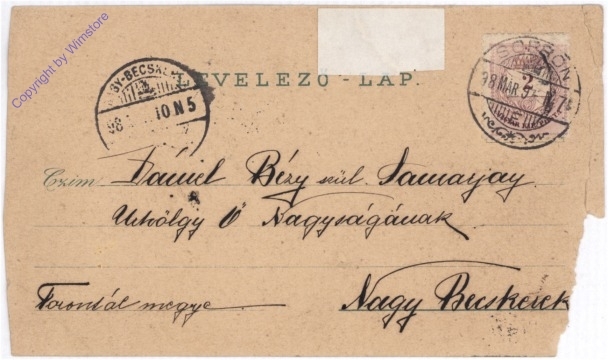 Copyright by Wimstore
SOPRON
98 MAR 9
LEVELEZŐ-LAP.
GY-BECSKE
98 10 N 5
Czim Dániel Bézy szül.
Ő Nagyságának
Torontál megye
Nagy Becskerek